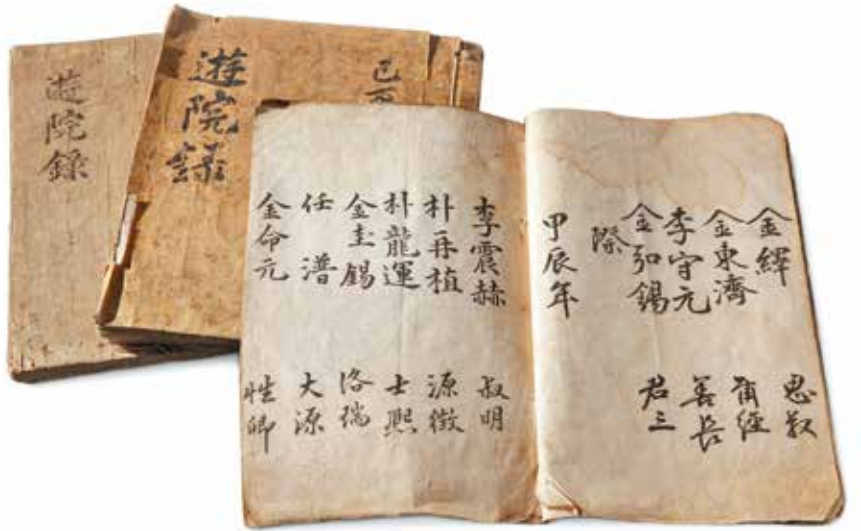 遊院錄
遊院錄
己
金繹 思
金東濟 經
李守元 善長
金弘錫 君三
際
甲辰年
李震赫 叔明
朴再植 源徵
朴龍運 士熙
金圭錫 洛瑞
任潽 大源
金命元 性卿